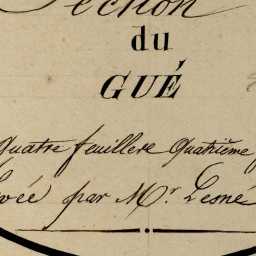 Section
du
GUÉ
Quatre feuillere Quatrième
par Mr. Lesné